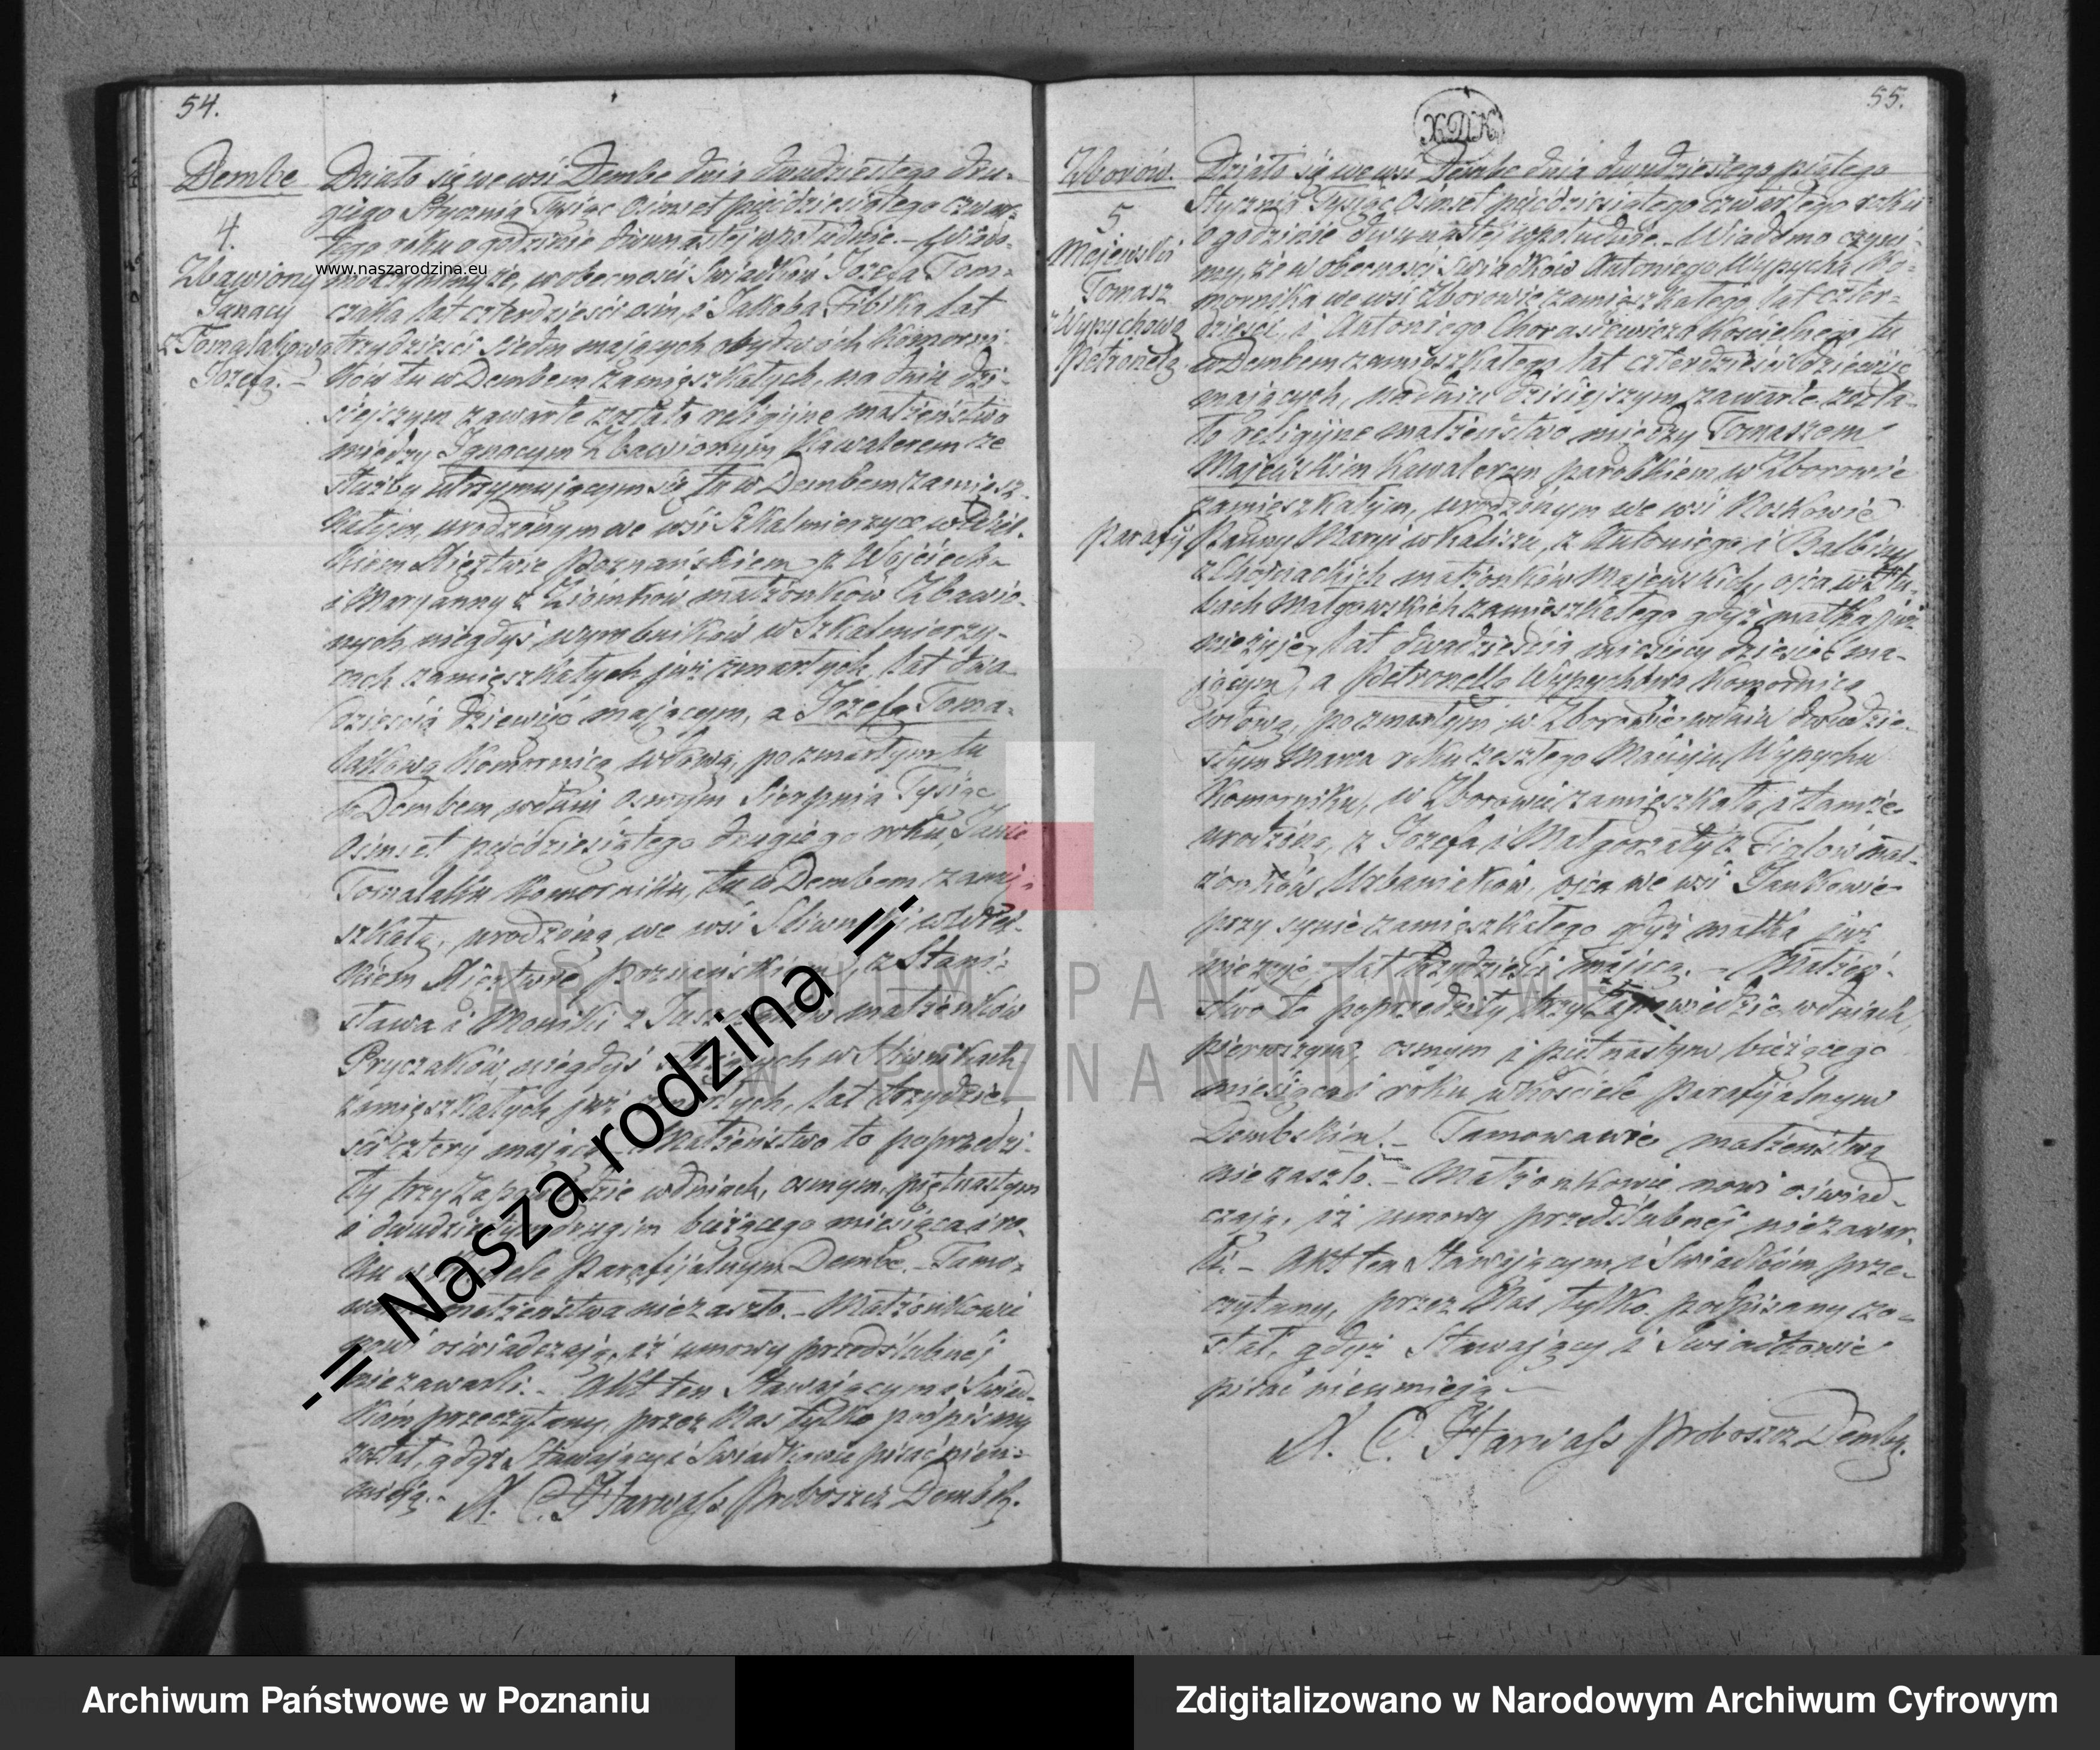 54.
Dembe
4.
Zbawiony
Ignacy
z Tomalakową
Józefą. –
Działo się we wsi Dembe dnia dwudziestego dru-
giego Stycznia Tysiąc Osimset pięćdziesiątego czwar-
tego roku o godzinie dwunastej w południe. – Wiado-
mo czynimy, że w obecności Świadków Józefa Tom-
czaka lat czterdzieści osim, i Jakóba Zibika lat
trzydzieści siedm mających obydwóch Komorni-
ków tu w Dembem zamięszkałych, na dniu dzi-
siejszym zawarte zostało religijne małżeństwo
między Ignacym Zbawionym Kawalerem ze
służby utrzymującym się tu w Dembem zamięsz-
kałym, urodzonym we wsi Szkalmierzyce w Wiel-
kiem Xięztwie Poznańskiem z Wojciecha
i Maryanny z Ziomków małżonków Zbawio-
nych niegdyś wyrobników w Szkalmierzy-
cach zamięszkałych już zmarłych, lat dwa-
dzieścia dziewięć mającym, a Józefą Toma-
lakową Komornicą wdową, po zmarłym tu
w Dembem w dniu ósmym Sierpnia Tysiąc
Osimset pięćdziesiątego drugiego roku, Janie
Tomalaku Komorniku, tu w Dembem zamię-
szkałą, urodzoną we wsi w Wiel-
kiem Xięztwie poznańskiem, z Stani-
sława i Moniki z małżonków
Pryczaków, niegdyś w Śliwnikach
zamięszkałych już zmarłych, lat trzydzie-
ści cztery mającą. – Małżeństwo to poprzedzi-
ły trzy Zapowiedzie w dniach, ósmym, piętnastym
i dwudziestym drugim bieżącego miesiąca i ro-
ku w Kościele Parafijalnym Dembe. – Tamo-
wanie małżeństwa nie zaszło. – Małżonkowie
nowi oświadczają, iż umowy przedślubnej
nie zawarli. – Akt ten Stawającym i Świad-
kom przeczytany, przez Nas tylko podpisany
został, gdyż Stawający i Świadkowie pisać nieu-
mieją. – X. C. Harwass Proboszcz Dembsk.
55.
XDK
Zborów.
5
Majewski
Tomasz
z Wypychową
Petronelą.
Działo się we wsi Dembe dnia dwudziestego piątego
Stycznia Tysiąc Osimset pięćdziesiątego czwartego roku
o godzinie dwunastej w południe. – Wiadomo czyni-
my, że w obecności Świadków Antoniego Wypycha Ko-
mornika we wsi Zborowie zamięszkałego, lat czter-
dzieści, i Antoniego Chorasiewicza Kościelnego, tu
w Dembem zamięszkałego lat czterdzieści dziewięć
mających, na dniu dzisiejszym zawarte zosta-
ło religijne małżeństwo między Tomaszem
Majewskim Kawalerem parobkiem w Zborowie
zamięszkałym, urodzonym we wsi Noskowie
parafij Panny Maryi w Kaliszu, z Antoniego i Balbiny
z małżonków Majewskich, ojca w Hu-
bach zamięszkałego gdyż matka już
nieżyje, lat dwadzieścia miesięcy dziesięć ma-
jącym, a Petronellą Wypychową Komornicą
wdową, po zmarłym w Zborowie w dniu dwudzie-
stym Marca roku zeszłego Macieju Wypychu
Komorniku, w Zborowie zamięszkałą i tamże
urodzoną, z Józefa i Małgorzaty z Figlów mał-
żonków Urbaniaków, ojca we wsi Jankowie
przy synie zamięszkałego gdyż matka już
nieżyje, lat trzydzieści mającą. – Małżeń-
stwo to poprzedziły trzy Zapowiedzie w dniach,
pierwszym ósmym i piętnastym bieżącego
miesiąca i roku w Kościele Parafijalnym
Dembskim. – Tamowanie małżeństwa
nie zaszło. – Małżonkowie nowi oświad-
czają, iż umowy przedślubnej nie zawar-
li. – Akt ten Stawającym i Świadkom prze-
czytany, przez Nas tylko podpisany zo-
stał, gdyż Stawający i Świadkowie
pisać nieumieją. –
X. C. Harwass Proboszcz Dembsk.
www.naszarodzina.eu
-= Nasza rodzina =-
ARCHIWUM PAŃSTWOWE
W POZNANIU
Archiwum Państwowe w Poznaniu
Zdigitalizowano w Narodowym Archiwum Cyfrowym